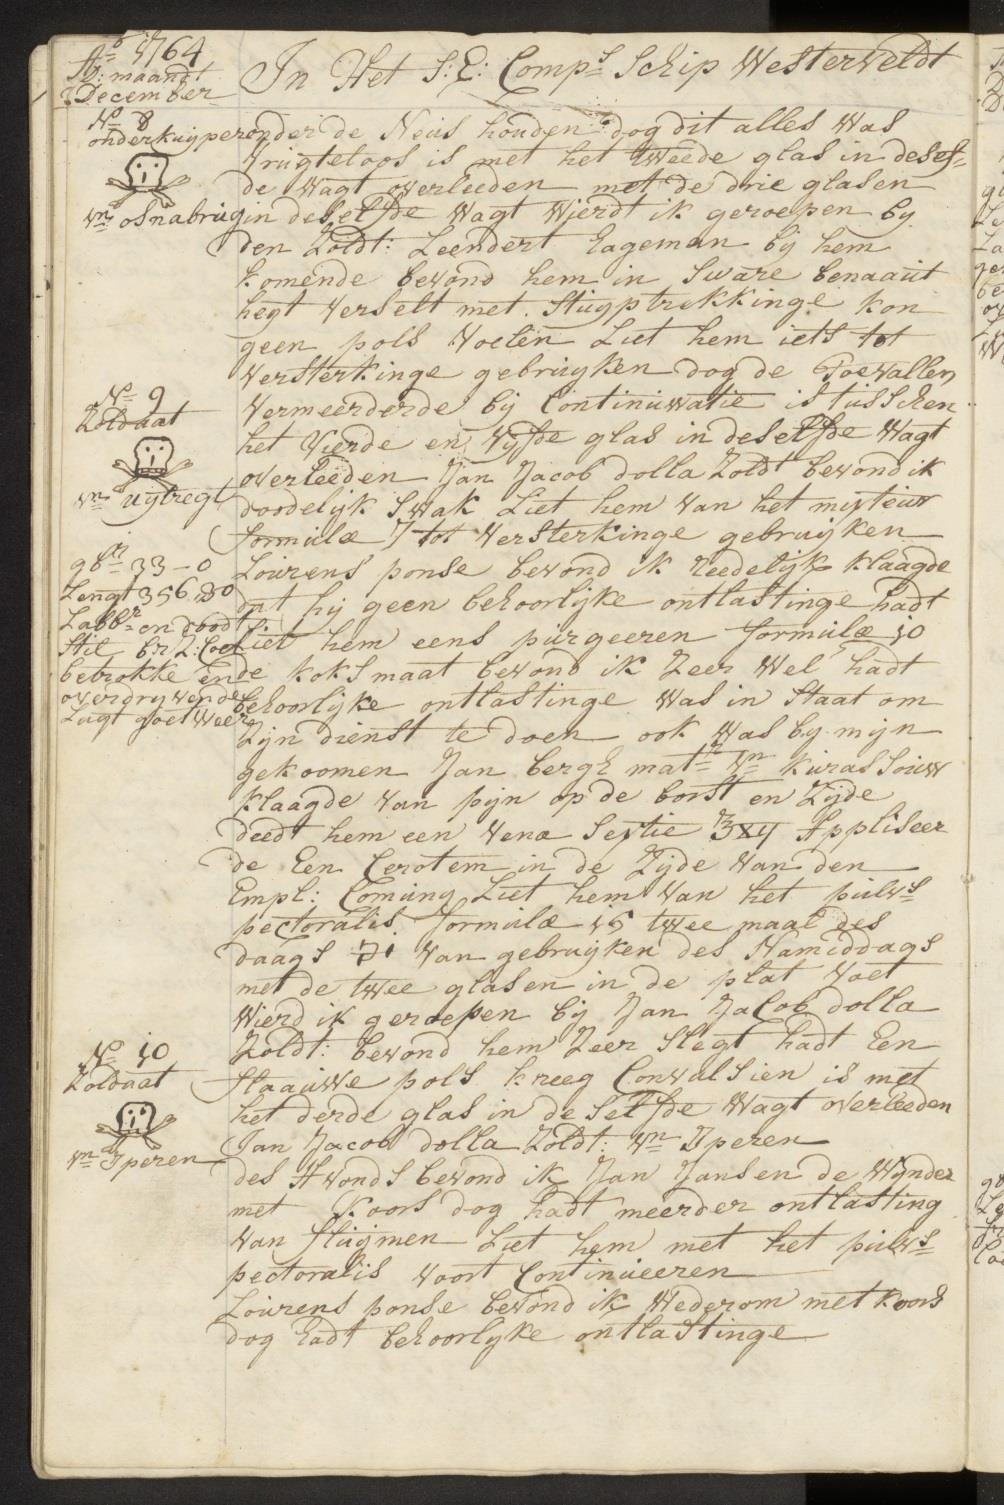 Ao 1764
In Het S: E: Comps Schip Westerveldt
D: maandt
December
No 8
onderkuyper
onder de Neus houden dog dit alles was
vrugteloos is met het tweede glas in desef-
de wagt overleeden met de drie glasen
vn osnabrug
in deselfde wagt wierdt ik geroepen by
den Zoldt: Leendert Hageman bij hem
komende bevond hem in sware benaaut
hegt verselt met Stuyptrekkinge kon
geen pols voelen Liet hem iets tot
versterkinge gebruyken dog de Toevallen
No 9
Zoldaat
vermeerderde bij Continuwatie is tusschen
het vierde en vyfde glas in deselfde wagt
overleeden Jan Jacob dolla Zoldt bevond ik
vn uytregt
doodelijk swak Liet hem van het mixteur
formulæ 7 tot versterkinge gebruijken
gbr 33 - 0
Lengt 356 20
Labbr en doodt
Stil br Z: Coel
betrokke en
overdryvende
Lugt goet weer
Lourens ponse bevond ik reedelijk klaagde
ont hij geen behoorlijke ontlastinge hadt
Liet hem eens purgeeren formulæ 10
de koksmaat bevond ik Zeer wel hadt
behoorlijke ontlastinge was in staat om
Zijn dienst te doen ook was by mijn
gekoomen Jan bergh matr vn kurassouw
klaagde van pijn op de borst en Zijde
deedt hem een vena Sextie ℥xy Appliseer
de Een Cerotem in de Zijde van den
Empl: Cominq Liet hem van het pulvs
pectoralis formulæ 15 twee maal des
daags ʒi van gebruyken des Namiddags
met de twee glasen in de plat voet
wierd ik geroepen bij Jan Jacob dolla
No 10
Zoldaat
Zoldt: bevond hem Zeer slegt hadt Een
flaauwe pols kreeg Convulsien is met
het derde glas in de selfde wagt overleeden
vn Iperen
Jan Jacob dolla Zoldt: vn Iperen
des Avonds bevond ik Jan Jansen de Wynder
met koors dog hadt meerder ontlasting
van fluijmen Liet hem met het pulvs
pectoralis voort Continueeren
Lourens ponse bevond ik Wederom met koors
dog hadt behoorlyke ontlastinge